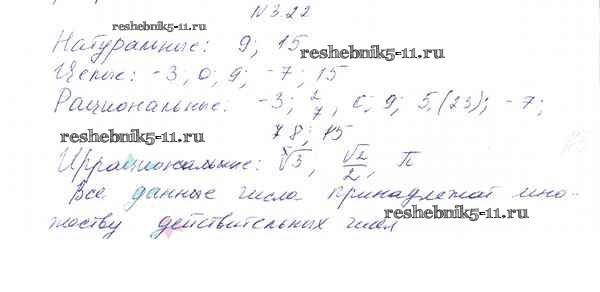 N 3.22
reshebnik5-11.ru
Натуральные: 9; 15
reshebnik5-11.ru
Целые: -3; 0; 9; -7; 15
Рациональные: -3; 2/7, 0; 9; 5,(23); -7;
reshebnik5-11.ru
7,8; 15
Иррациональные: √3, √2/2, π
reshebnik5-11.ru
Все данные числа принадлежат мно-
reshebnik5-11.ru
жеству действительных чисел